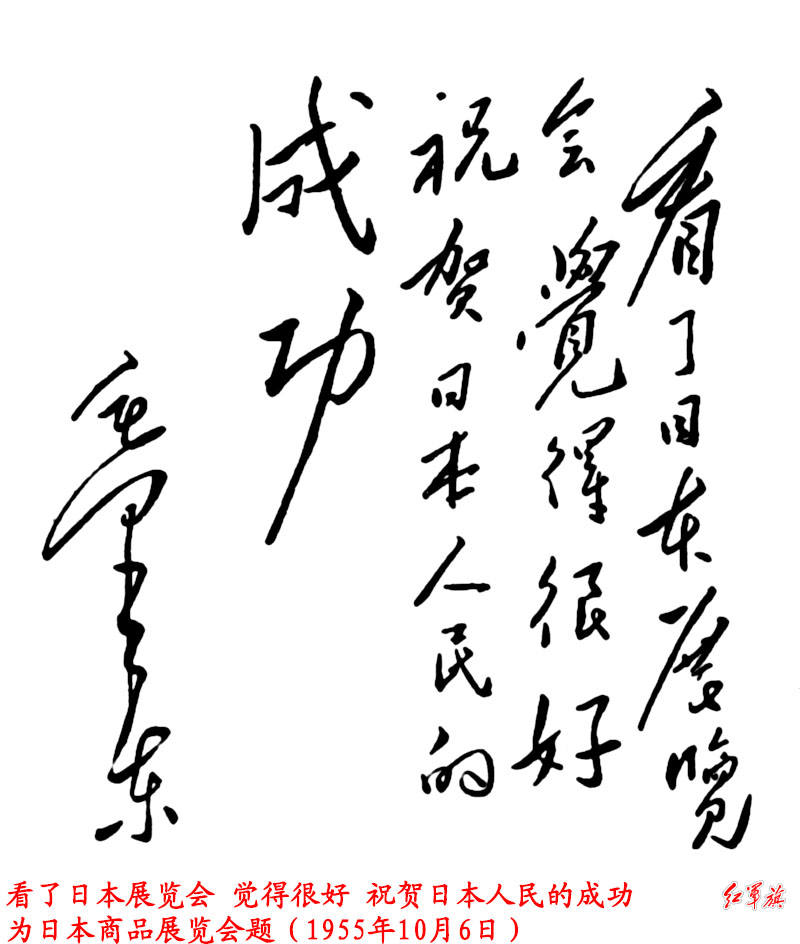 看了日本展览
会覺得很好
祝贺日本人民的
成功
毛泽东
看了日本展览会 觉得很好 祝贺日本人民的成功
为日本商品展览会题（1955年10月6日）
红军旗